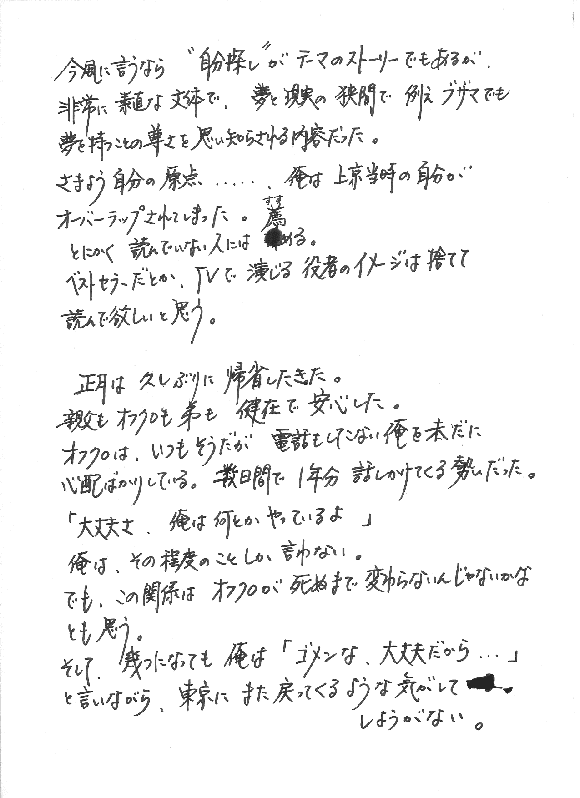 今風に言うなら “自分探し”が テーマのストーリーでもあるが、
非常に素直な文体で、夢と現実の狭間で 例え ブザマでも
夢を持つことの尊さを思い知らされる内容だった。
さまよう自分の原点……、俺は上京当時の自分が
オーバーラップされてしまった。
とにかく 読んでいない人には 薦める。
ベストセラーだとか、TVで演じる役者のイメージは捨てて
読んで欲しいと思う。
正月は久しぶりに帰省したきた。
親父もオフクロも弟も 健在で安心した。
オフクロは、いつもそうだが 電話もしてこない俺を未だに
心配ばかりしている。数日間で1年分 話しかけてくる勢いだった。
「大丈夫さ、俺は何とかやっているよ 」
俺は、その程度のことしか言わない。
でも、この関係は オフクロが死ぬまで変わらないんじゃないかな
とも思う。
そして、幾つになっても俺は「ゴメンな、大丈夫だから…」
と言いながら、東京にまた戻ってくるような気がして
しょうがない。